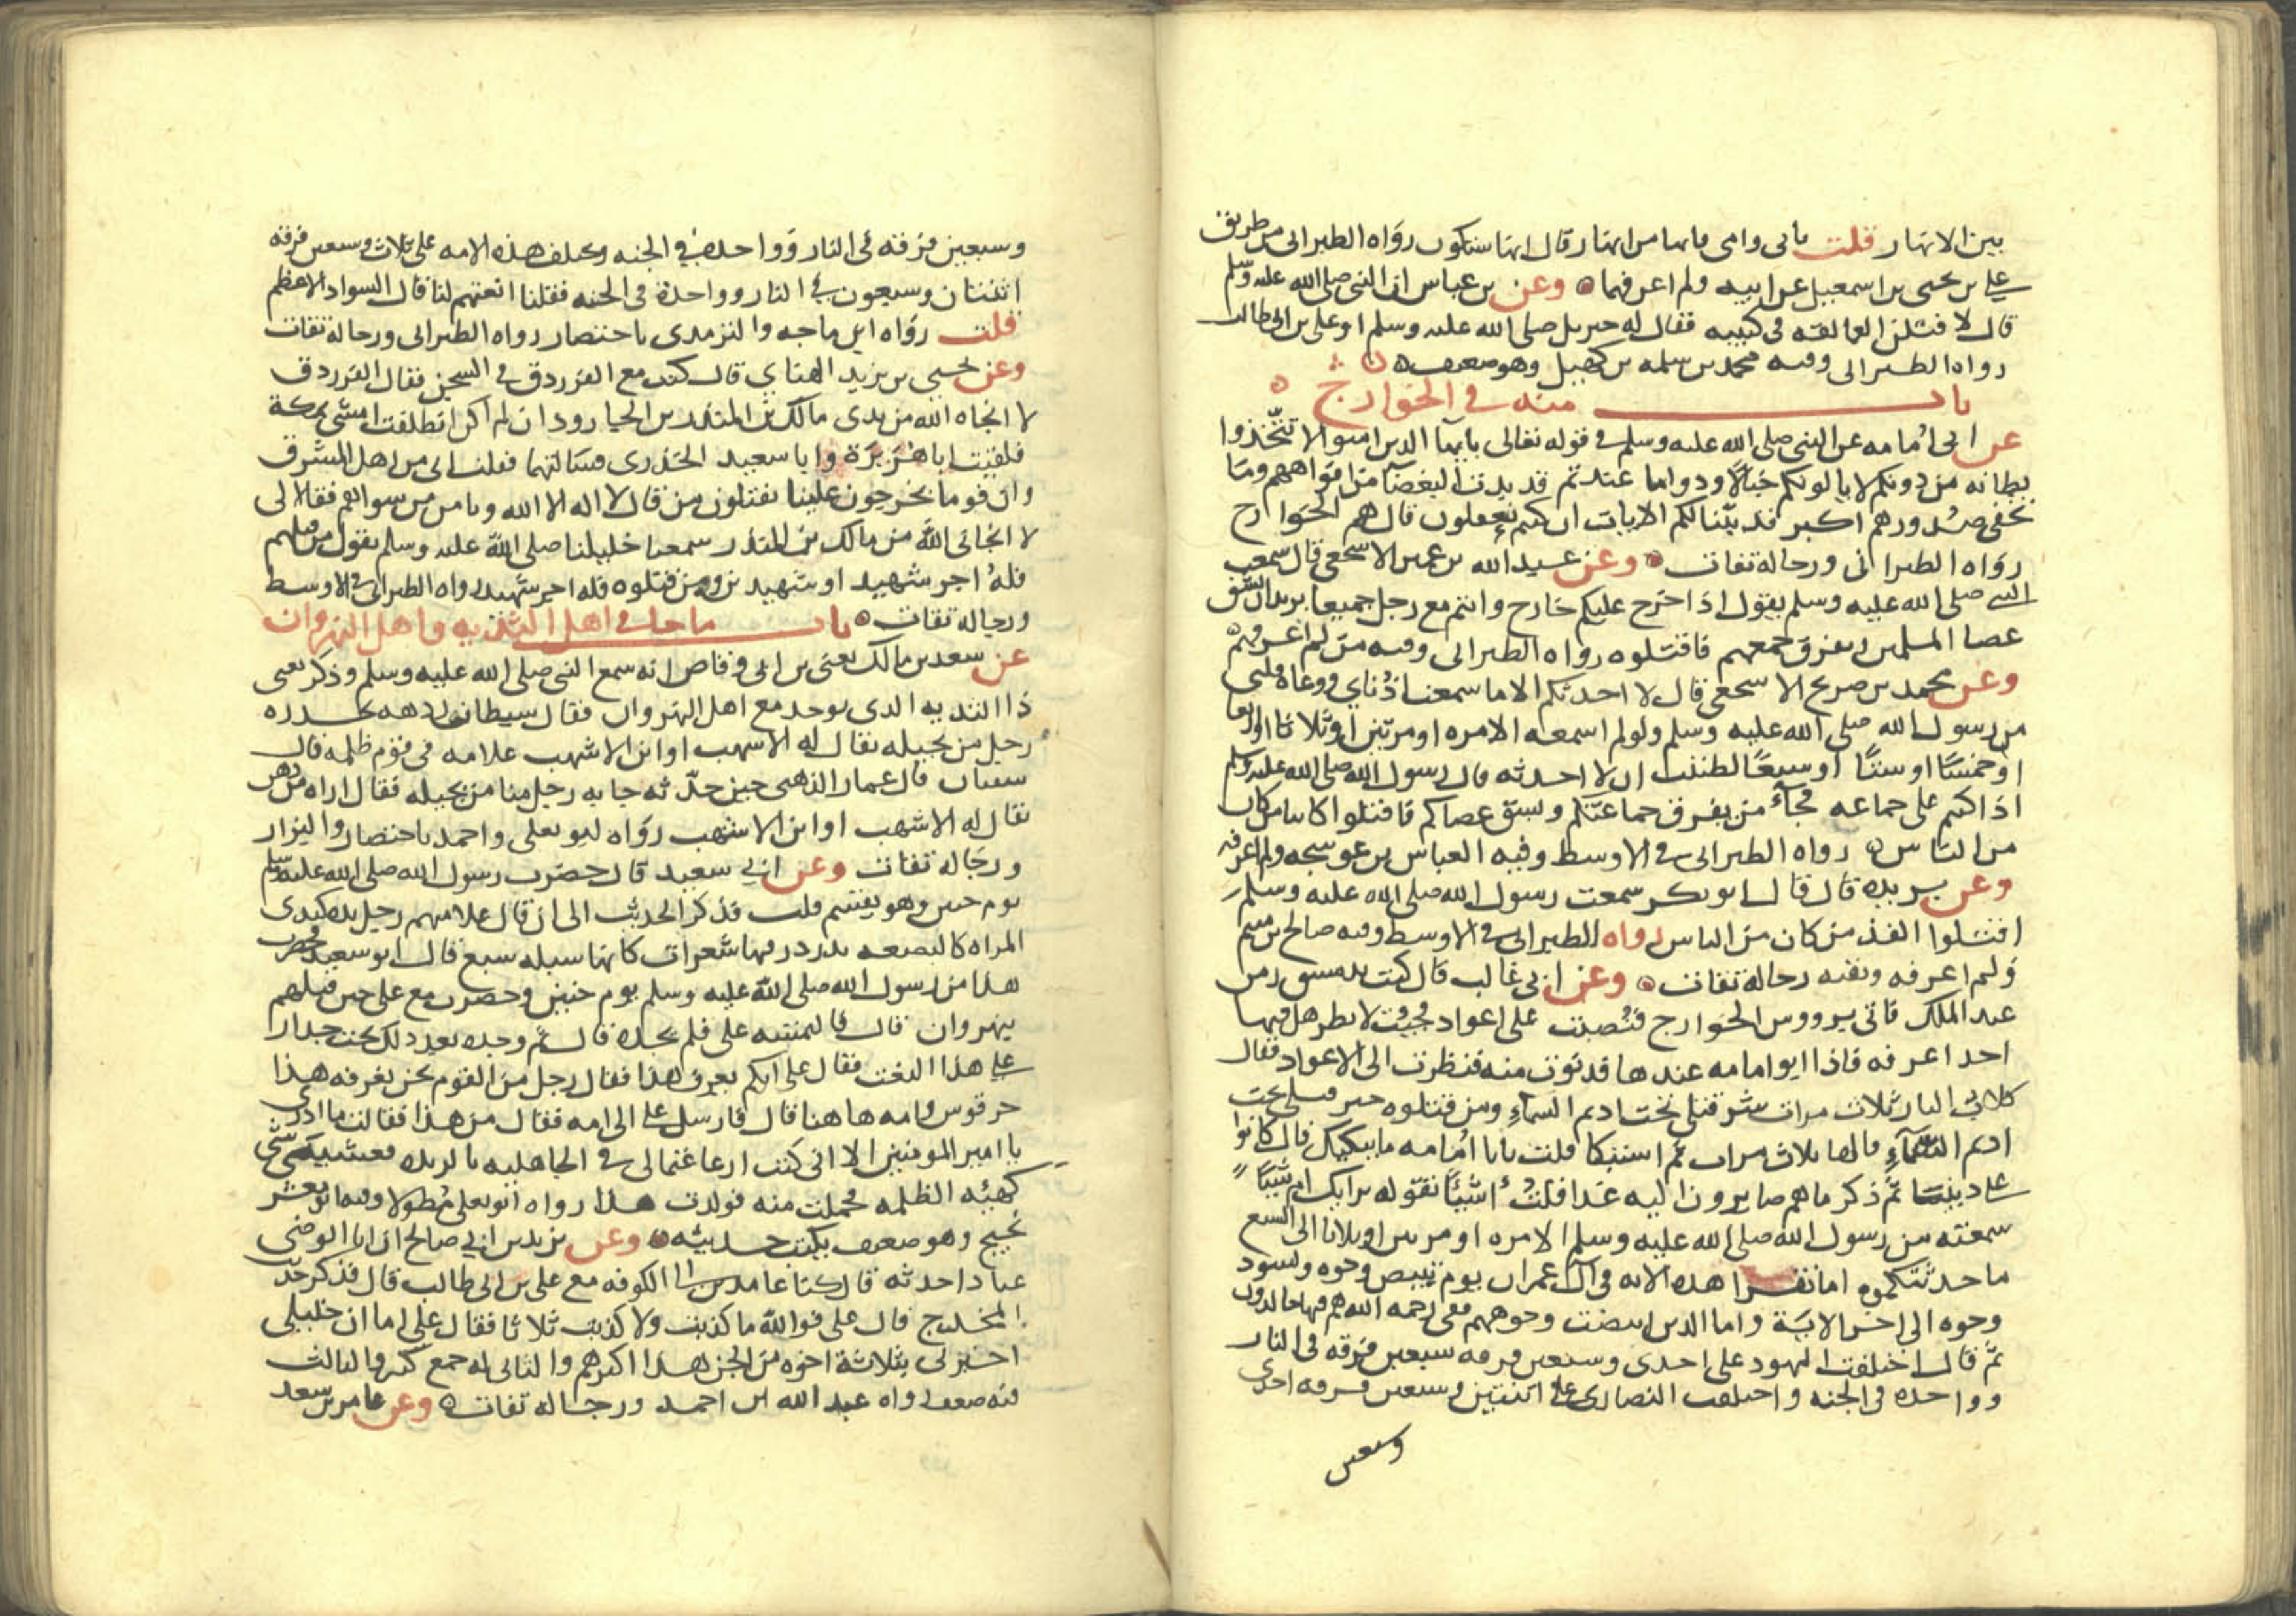 بين الانهار قلت بابى وامى يا يها من انهار قال انها ستكون رواه الطبرانى من طريق
على بن يحيى بن اسمعيل عن ابيه ولم اعرفهما وعن بن عباس ان النبى صلى الله عليه وسلم
قال لاقتلن العمالقه فى كتيبه فقال له جبريل صلى الله عليه وسلم او على بن ابى طالب
رواه الطبرانى وفيه محمد بن سلمه بن كهيل وهو ضعيف
باب منه فى الخوارج
عن ابى امامه عن النبى صلى الله عليه وسلم فى قوله تعالى يا يها الذين امنوا لا تتخذوا
بطانه من دونكم لا يالونكم خبالا ودوا ما عنتم قد بدت البغضا من افواههم وما
تخفى صدورهم اكبر قد بينا لكم الايات ان كنتم تعقلون قال هم الخوارج
رواه الطبرانى ورجاله ثقات وعن عبيد الله بن عمير الاشجعى قال سمعت
النبى صلى الله عليه وسلم يقول اذا خرج عليكم خارج وانتم مع رجل جميعا يريد ان يشق
عصا المسلمين ويفرق جمعهم فاقتلوه رواه الطبرانى وفيه من لم اعرفهم
وعن محمد بن صريح الاشجعى قال لا احدثكم الا ما سمعت اذناى ووعاه قلبى
من رسول الله صلى الله عليه وسلم ولو لم اسمعه الا مره او مرتين او ثلاثا او اربعا
او خمسا او ستا او سبعا لظننت ان لا احدثه قال رسول الله صلى الله عليه وسلم
اذا كنتم على جماعه فجآء من يفرق جماعتكم ويشق عصاكم فاقتلوا كاينا من كان
من الناس رواه الطبرانى فى الاوسط وفيه العباس بن عوسجه ولم اعرفه
وعن بريده قال قال ابو بكر سمعت رسول الله صلى الله عليه وسلم
اقتلوا الفذ من كان من الناس رواه الطبرانى فى الاوسط وفيه صالح بن ميثم
ولم اعرفه وبقيه رجاله ثقات وعن ابى غالب قال كنت بدمشق زمن
عبد الملك فاتى برووس الخوارج فنصبت على اعواد فجيت لانظر هل فيها
احدا اعرفه فاذا ابو امامه عندها فدنوت منه فنظرت الى الاعواد فقال
كلاب النار ثلاث مرات شر قتلى تحت اديم السماء ومن قتلوه خير قتلى تحت
اديم السمآء قالها ثلاث مرات ثم استبكا قلت يا ابا امامه ما يبكيك قال كانوا
على ديننا ثم ذكر ما هم صايرون اليه غدا فقلت اشيئا تقوله برايك ام شيئا
سمعته من رسول الله صلى الله عليه وسلم الا مره او مرتين او ثلاثا الى السبع
ما حدثتكموه اما تقرا هذه الايه فى آل عمران يوم تبيض وجوه وتسود
وجوه الى اخر الاية واما الذين ابيضت وجوههم ففى رحمه الله هم فيها خالدون
ثم قال اختلفت اليهود على احدى وسبعين فرقه سبعين فرقه فى النار
وواحده فى الجنه واختلفت النصارى على اثنتين وسبعين فرقه احدى
وسبعين
وسبعين فرقة فى النار وواحده فى الجنه وتختلف هذه الامه على ثلاث وسبعين فرقه
اثنتان وسبعون فى النار وواحدة فى الجنه فقلنا انعتهم لنا قال السواد الاعظم
قلت رواه ابن ماجه والترمذى باختصار رواه الطبرانى ورجاله ثقات
وعن يحيى بن يزيد الهناى قال كنت مع الفرزدق فى السجن فقال الفرزدق
لا انجاه الله من يدى مالك بن المنذر بن الجارود ان لم اكن انطلقت امشى بمكة
فلقيت ابا هريرة وابا سعيد الخدرى فسالتهما فقلت انى من اهل المشرق
وان قوما يخرجون علينا يقتلون من قال لا اله الا الله ويامن من سواهم فقالا لى
لا انجانى الله من مالك بن المنذر سمعنا خليلنا صلى الله عليه وسلم يقول من قتلهم
فله اجر شهيد او شهيدين ومن قتلوه فله اجر شهيد رواه الطبرانى فى الاوسط
ورجاله ثقات باب ما جا فى اهل الثديه واهل النهروان
عن سعد بن مالك يعنى بن ابى وقاص انه سمع النبى صلى الله عليه وسلم وذكر يعنى
ذا الثديه الذى يوجد مع اهل النهروان فقال شيطان الردهه يحدره
رجل من بجيله يقال له الاشهب او ابن الاشهب علامه فى قوم ظلمه قال
سفيان قال عمار الذهبى حين حدثه جا به رجل منا من بجيله فقال اراه من دهن
يقال له الاشهب او ابن الاشهب رواه ابو يعلى واحمد باختصار والبزار
ورجاله ثقات وعن ابى سعيد قال حضرت رسول الله صلى الله عليه وسلم
يوم حنين وهو يقسم قلت فذكر الحديث الى ان قال علامتهم رجل يده كثدى
المراه كالبضعه تدردر فيها شعرات كانها سبله سبع قال ابو سعيد فحضرت
هذا من رسول الله صلى الله عليه وسلم يوم حنين وحضرت مع على حين قتلهم
بنهروان قال فالتمسه على فلم يجده قال ثم وجده بعد ذلك تحت جدار
على هذا النعت فقال على ايكم يعرف هذا فقال رجل من القوم نحن نعرفه هذا
حرقوس وامه هاهنا قال فارسل على الى امه فقال من هذا فقالت ما ادرى
يا امير المومنين الا انى كنت ارعا غنما لى فى الجاهليه بالربذه فغشينى شى
كهيئه الظلمه فحملت منه فولدت هذا رواه ابو يعلى مطولا وفيه ابو معشر
نجيح وهو ضعيف يكتب حديثه وعن يزيد بن ابى صالح ان ابا الوضى
عبادا حدثه قال كنا عامدين الى الكوفه مع على بن ابى طالب قال فذكر حديث
المخدج قال على فوالله ما كذبت ولا كذبت ثلاثا فقال على اما ان خليلى
اخبرنى بثلاثة اخوه من الجن هذا اكبرهم والثانى له جمع كثير والثالث
فيه ضعف رواه عبد الله ابن احمد ورجاله ثقات وعن عامر بن سعد